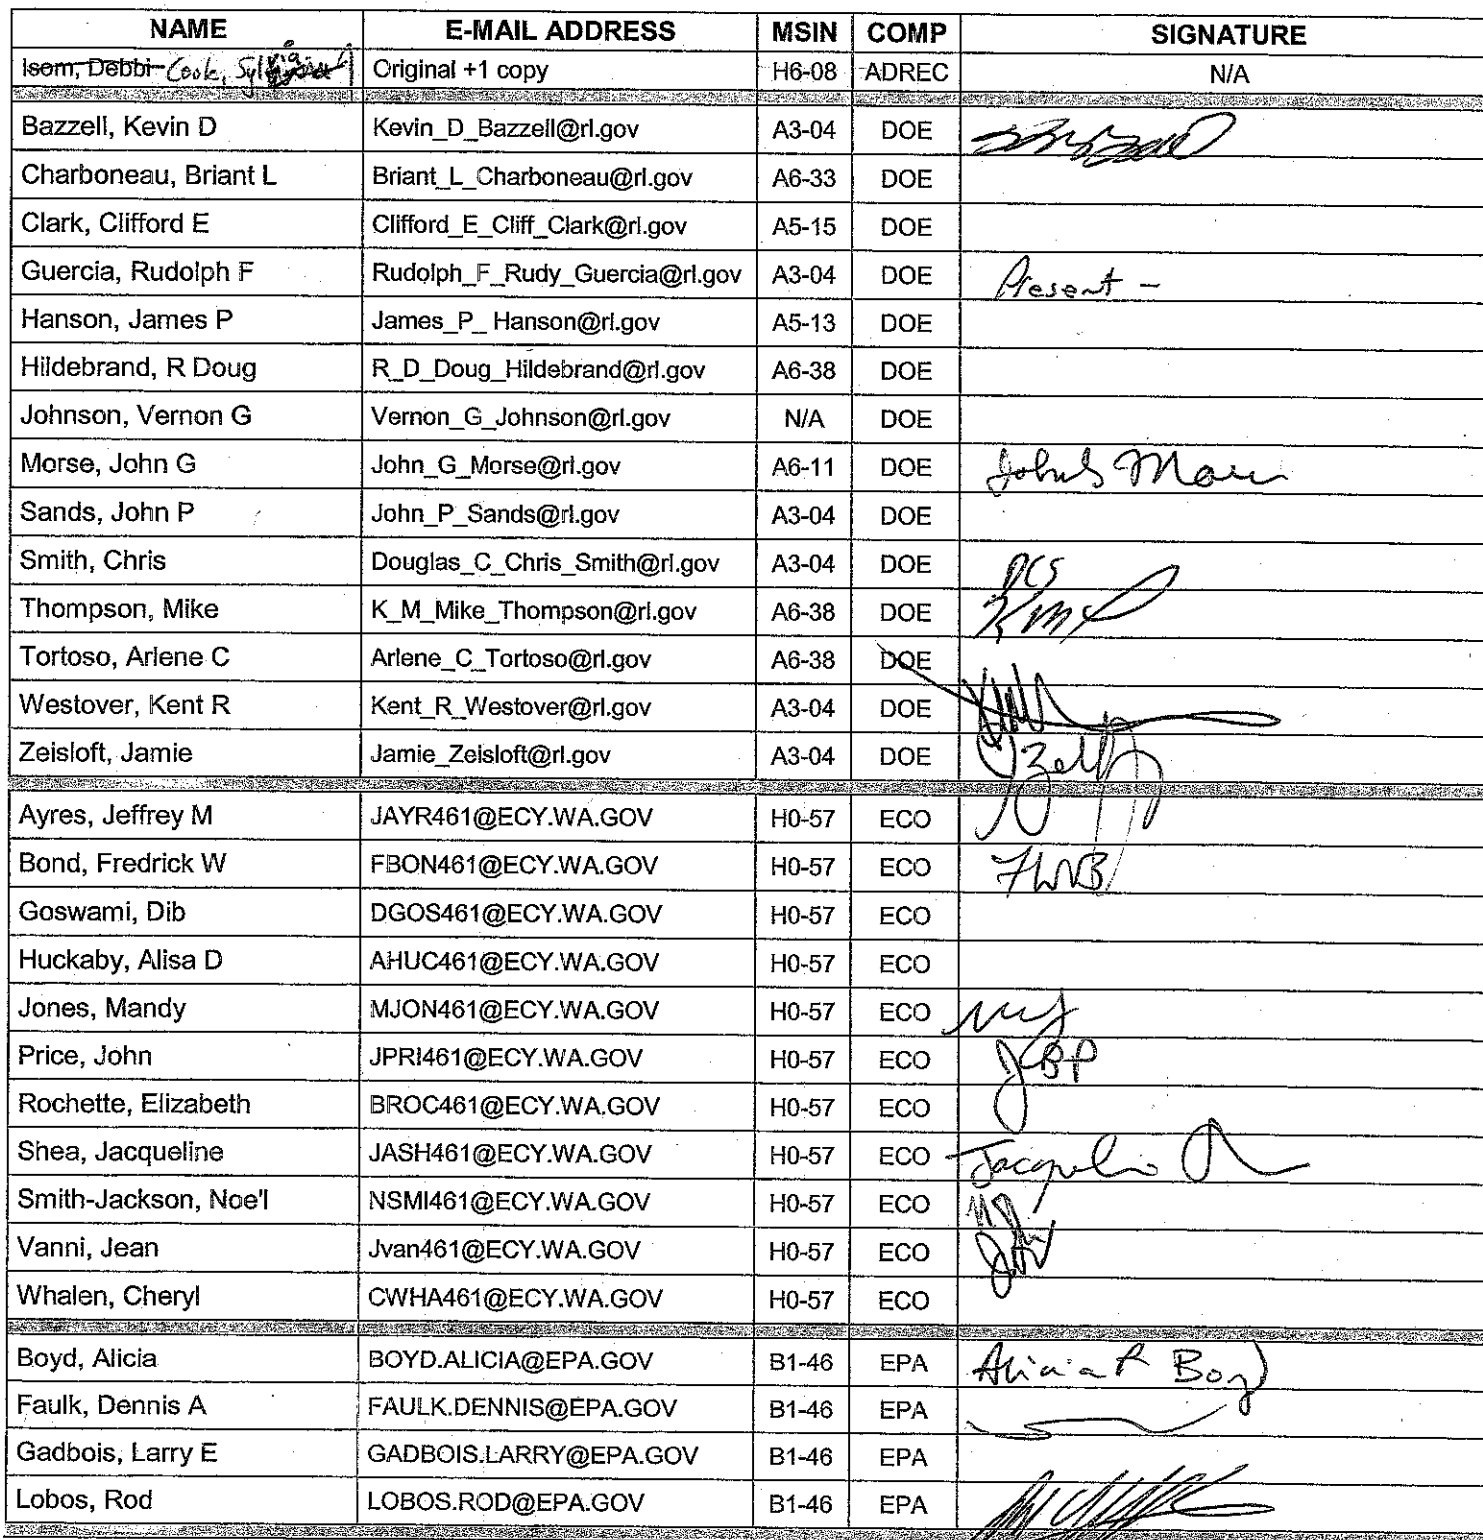 NAME E-MAIL ADDRESS MSIN COMP SIGNATURE
Isom, Debbi Cook, Sylvia Original +1 copy H6-08 ADREC N/A
Bazzell, Kevin D Kevin_D_Bazzell@rl.gov A3-04 DOE
Charboneau, Briant L Briant_L_Charboneau@rl.gov A6-33 DOE
Clark, Clifford E Clifford_E_Cliff_Clark@rl.gov A5-15 DOE
Guercia, Rudolph F Rudolph_F_Rudy_Guercia@rl.gov A3-04 DOE Present -
Hanson, James P James_P_ Hanson@rl.gov A5-13 DOE
Hildebrand, R Doug R_D_Doug_Hildebrand@rl.gov A6-38 DOE
Johnson, Vernon G Vernon_G_Johnson@rl.gov N/A DOE
Morse, John G John_G_Morse@rl.gov A6-11 DOE
Sands, John P John_P_Sands@rl.gov A3-04 DOE
Smith, Chris Douglas_C_Chris_Smith@rl.gov A3-04 DOE DCS
Thompson, Mike K_M_Mike_Thompson@rl.gov A6-38 DOE KMT
Tortoso, Arlene C Arlene_C_Tortoso@rl.gov A6-38 DOE
Westover, Kent R Kent_R_Westover@rl.gov A3-04 DOE
Zeisloft, Jamie Jamie_Zeisloft@rl.gov A3-04 DOE
Ayres, Jeffrey M JAYR461@ECY.WA.GOV H0-57 ECO
Bond, Fredrick W FBON461@ECY.WA.GOV H0-57 ECO FWB
Goswami, Dib DGOS461@ECY.WA.GOV H0-57 ECO
Huckaby, Alisa D AHUC461@ECY.WA.GOV H0-57 ECO
Jones, Mandy MJON461@ECY.WA.GOV H0-57 ECO MJ
Price, John JPRI461@ECY.WA.GOV H0-57 ECO JBP
Rochette, Elizabeth BROC461@ECY.WA.GOV H0-57 ECO
Shea, Jacqueline JASH461@ECY.WA.GOV H0-57 ECO
Smith-Jackson, Noe'l NSMI461@ECY.WA.GOV H0-57 ECO
Vanni, Jean Jvan461@ECY.WA.GOV H0-57 ECO
Whalen, Cheryl CWHA461@ECY.WA.GOV H0-57 ECO
Boyd, Alicia BOYD.ALICIA@EPA.GOV B1-46 EPA Alicia R Boyd
Faulk, Dennis A FAULK.DENNIS@EPA.GOV B1-46 EPA
Gadbois, Larry E GADBOIS.LARRY@EPA.GOV B1-46 EPA
Lobos, Rod LOBOS.ROD@EPA.GOV B1-46 EPA